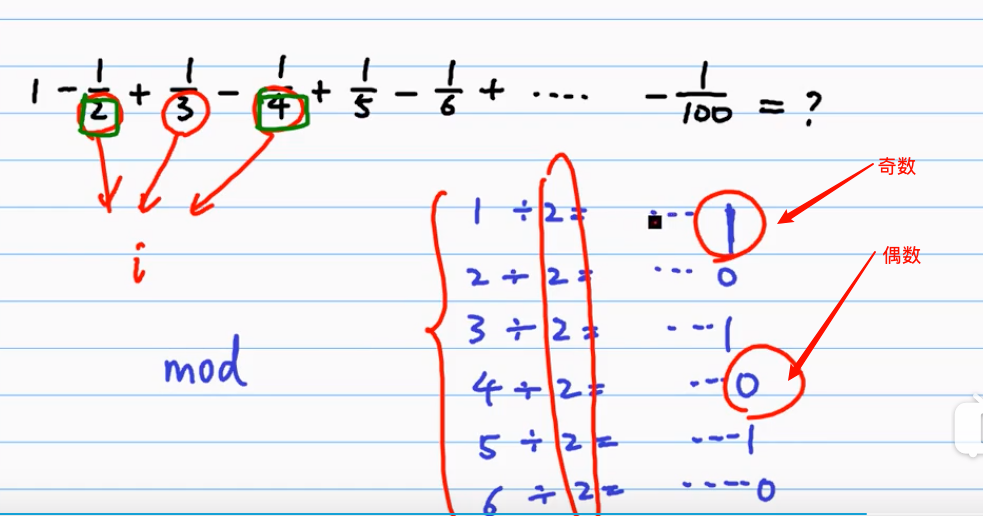 1 - 1/2 + 1/3 - 1/4 + 1/5 - 1/6 + .... - 1/100 = ?
i
mod
1 ÷ 2 = ... 1
奇数
2 ÷ 2 = ... 0
偶数
3 ÷ 2 = ... 1
4 ÷ 2 = ... 0
5 ÷ 2 = ... 1
6 ÷ 2 = .... 0